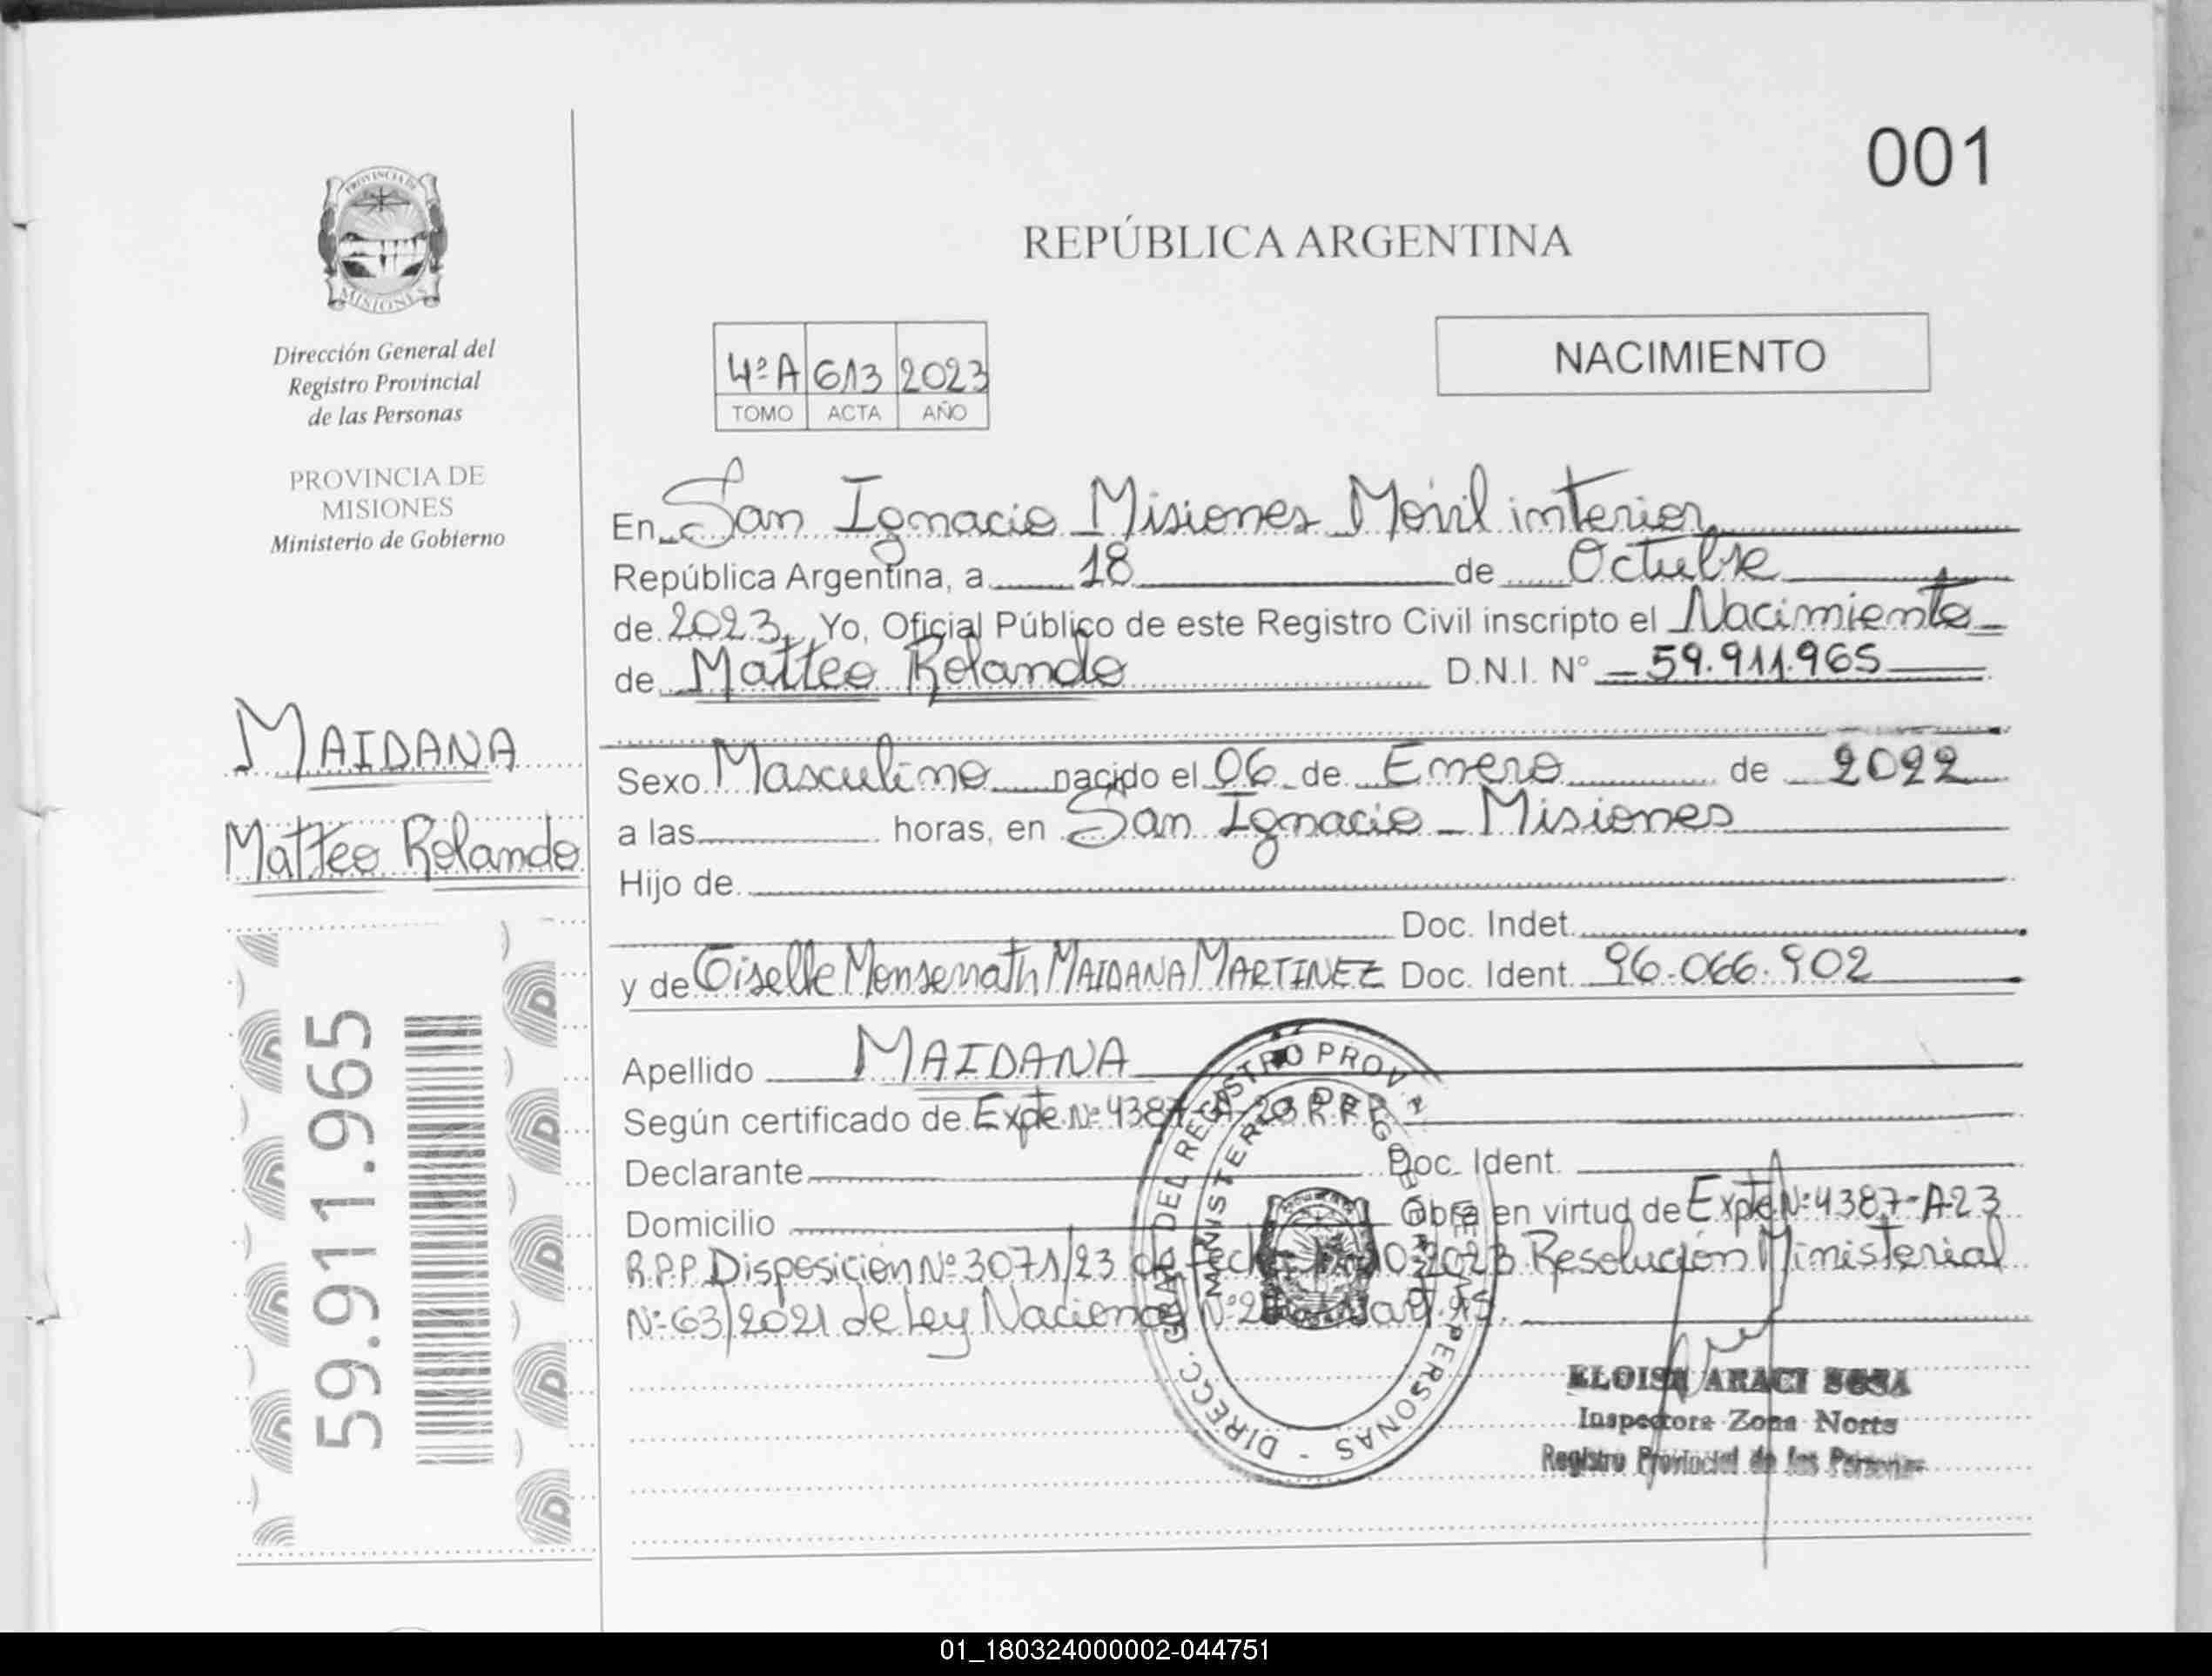 001
PROVINCIA DE
MISIONES
Dirección General del
Registro Provincial
de las Personas
PROVINCIA DE
MISIONES
Ministerio de Gobierno
MAIDANA
Matteo Rolando
59.911.965
REPÚBLICA ARGENTINA
NACIMIENTO
4ºA 613 2023
TOMO ACTA AÑO
En San Ignacio Misiones Móvil interior
República Argentina, a 18 de Octubre
de 2023, Yo, Oficial Público de este Registro Civil inscripto el Nacimiento
de Matteo Rolando D.N.I. N° 59.911.965
Sexo Masculino nacido el 06 de Enero de 2022
a las horas, en San Ignacio - Misiones
Hijo de
Doc. Indet.
y de Giselle Monserrath MAIDANA MARTINEZ Doc. Ident. 96.066.902
Apellido MAIDANA
Según certificado de Expte. Nº 4387-A-23 R.P.P.
Declarante Doc. Ident.
Domicilio Obra en virtud de Expte Nº 4387-A-23
R.P.P. Disposición Nº 3071/23 de fecha 2023 Resolución Ministerial
Nº 63/2021 de Ley Nacional Nº
DIRECC. GRAL. DEL REGISTRO PROV. PERSONAS
MINISTERIO DE GOBIERNO
ELOISA ARACI SOSA
Inspectora Zona Norte
Registro Provincial de las Personas
01_180324000002-044751